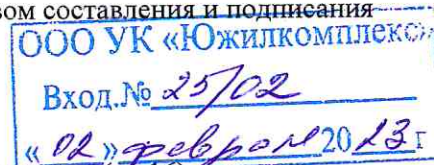 вом составления и подписания
ООО УК «Южилкомплекс»
Вход.№ 25/02
« 02 » февраля 2023 г